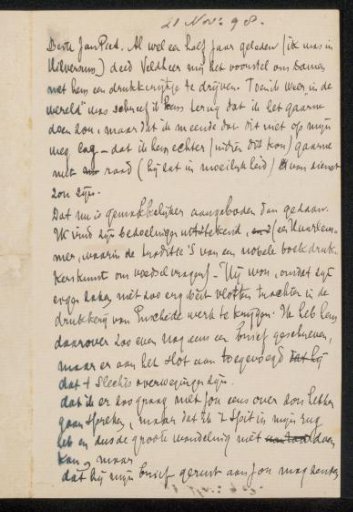 21 Nov: 98.
Beste Jan Piet. Al wel een half jaar geleden (ik was in
Hilversum) deed Veldheer mij het voorstel om samen
met hem een drukkerijtje te drijven. Toen ik weer in de
wereld was schreef ik hem terug dat ik het gaarne
doen zou, maar dat ik meende dat dit niet op mijn
weg lag – dat ik hem echter (indien dit kon) gaarne
met raad (hij zat in moeilijkheid) van dienst
zou zijn.
Dat nu is gemakkelijker aangeboden dan gedaan.
Ik vind zijn bedoelingen uitstekend, (een Haarlem-
mer, waarin de traditie 's van een nobele boekdruk-
kerskunst om voedsel vragen) – Hij wou, omdat zijn
eigen zaken niet zoo erg best vlotten trachten in de
drukkerij van Enschede werk te krijgen. Ik heb hem
daarover zoo even nog eens een brief geschreven,
maar er aan het slot aan toegevoegd
dat 't slechts overwegingen zijn.
dat ik er zoo graag met jou eens over zou hebben
gaan spreken, maar dat ik 't spit in mijn rug
heb en dus de groote wandeling niet doen
kan, maar
dat hij mijn brief gerust aan jou mag